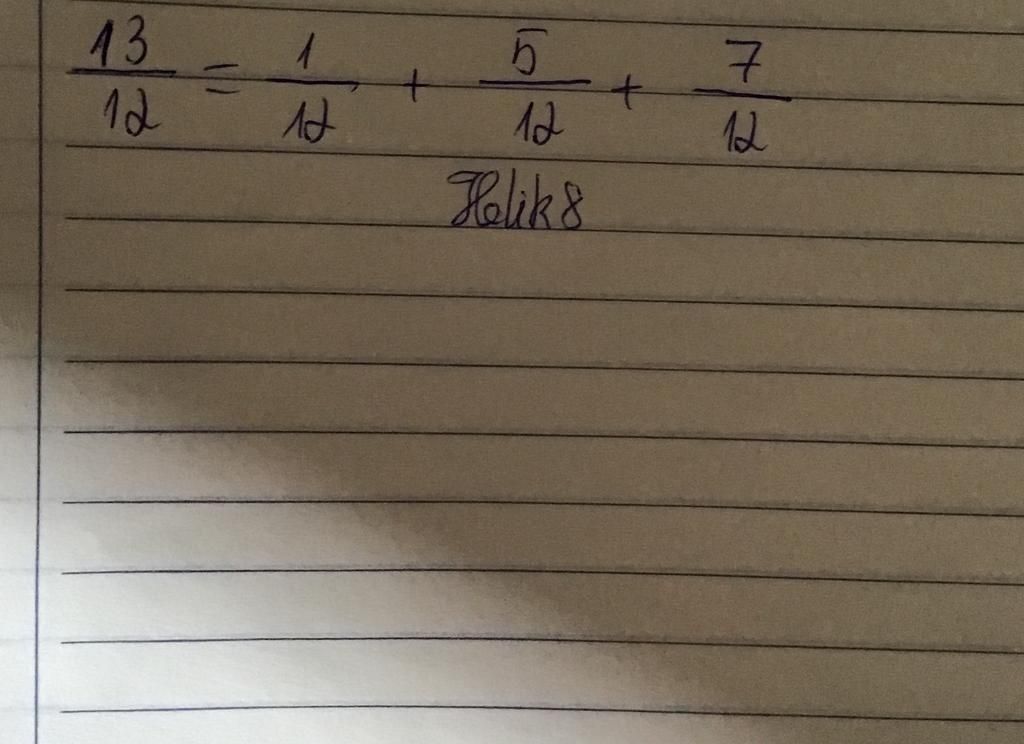 13/12 = 1/12 + 5/12 + 7/12
Helik8